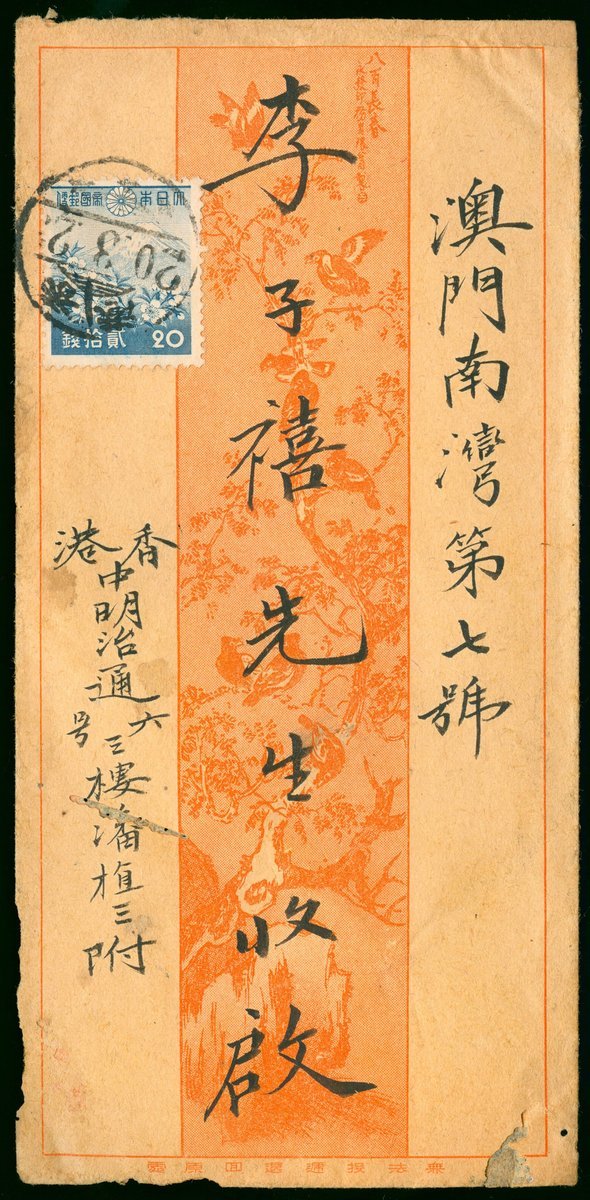 八百長春
澳門南灣第七號
李子禧先生收啟
大日本
帝國郵便
貳拾錢
20
香港
20.3.2
香港
中明治通六号
三樓潘植三附
無法投遞退回原處